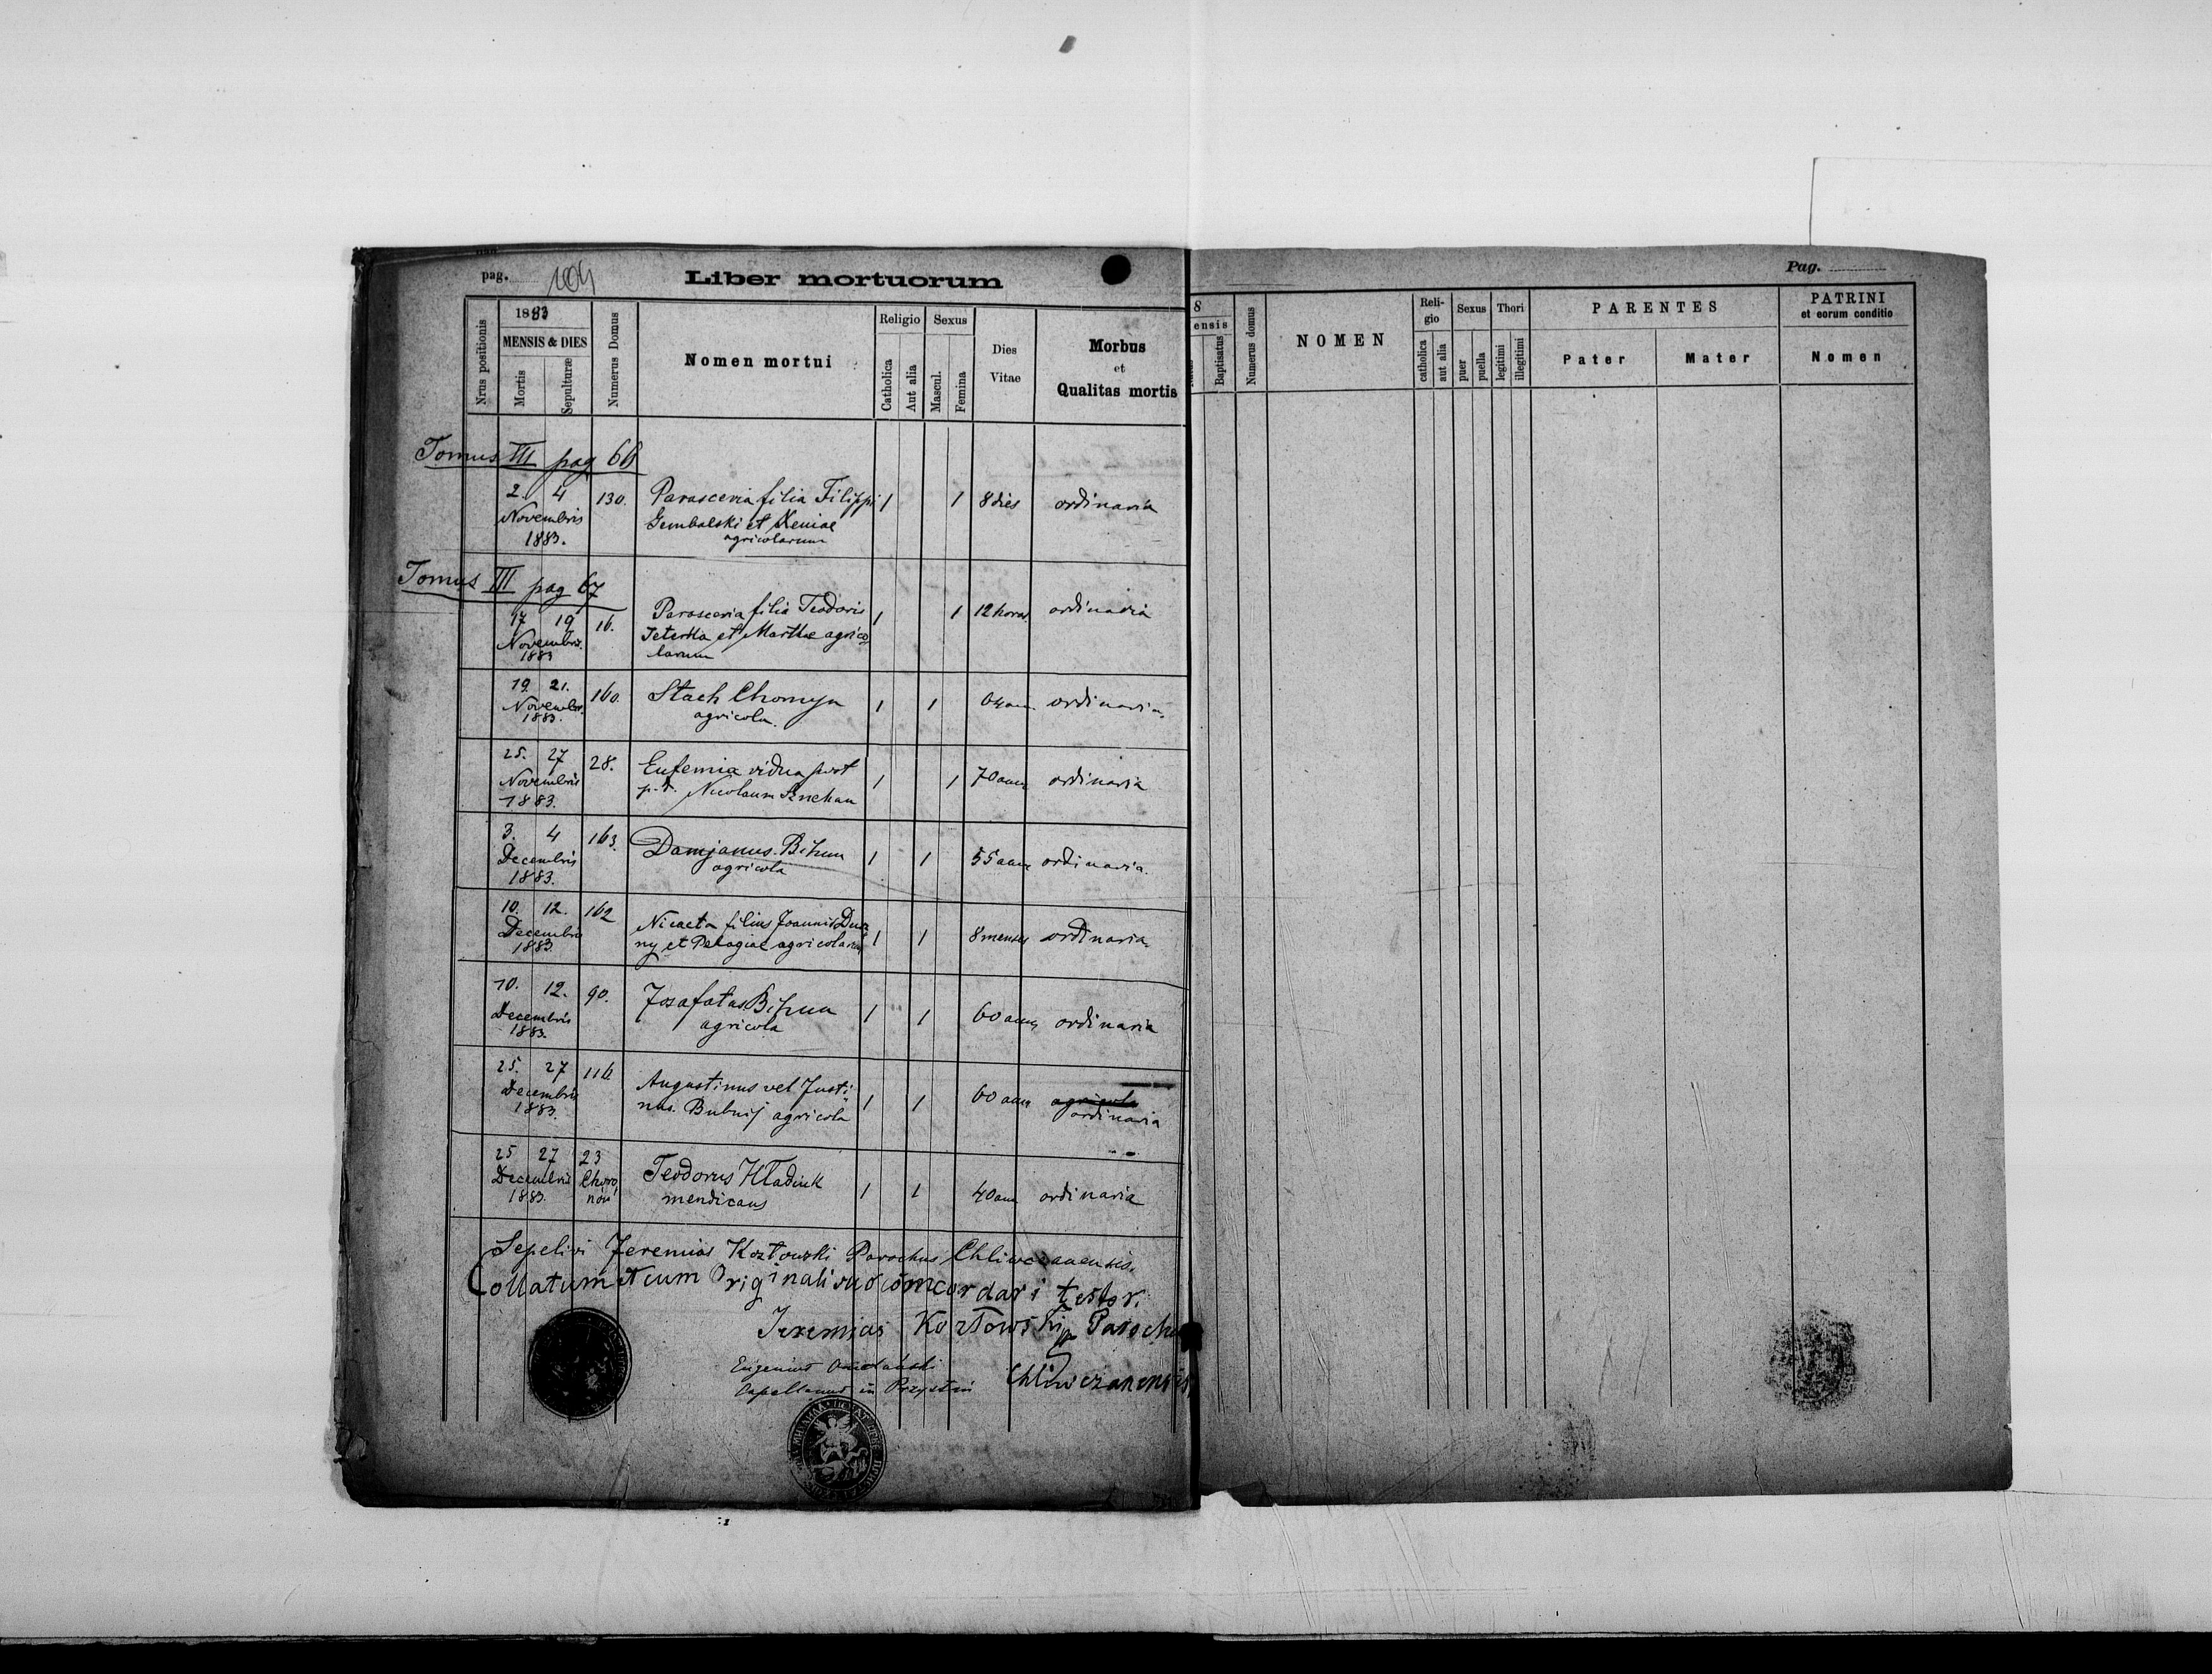 pag. 104
Liber mortuorum
Nrus positionis
1883
MENSIS & DIES
Mortis
Sepulturæ
Numerus Domus
Nomen mortui
Religio
Catholica
Aut alia
Sexus
Mascul.
Femina
Dies
Vitae
Morbus
et
Qualitas mortis
Tomus III pag 66
2. 4 130. Parascevia filia Filippi 1 1 8 dies ordinaria
Novembris Gembalski et Xeniae
1883. agricolarum
Tomus III pag 67
17 19 16. Parascevia filia Teodoris 1 1 12 horas ordinaria
Novembris et Marthae agrico
1883 larum
19. 21. 160. Stach Chomyn 1 1 ordinaria
Novembr. agricola.
1883.
25. 27 28. Eufemia vidua post 1 1 70 ann ordinaria
Novembris p. d. Nicolaum
1883.
3. 4 163. Damjanus Bihun 1 1 55 ann ordinaria.
Decembris agricola
1883.
10. 12. 162 Nicaeta filius Joannis 1 1 8 menses ordinaria.
Decembris ny et Pelagiae agricolarum
1883.
10. 12. 90. Josafatus Bihun 1 1 60 ann ordinaria
Decembris agricola
1883.
25. 27 116. Augustinus vel Justi- 1 1 60 ann agricola
Decembris nus. Bubnij agricola ordinaria
1883.
25 27 23 Teodorus Hładiuk 1 1 40 ann ordinaria
Decembris mendicans
1883.
Sepelivi Jeremias Kozłowski Parochus Chliwczanensis.
Collatum et cum Originali suo concordari testor.
Jeremias Kozłowski Parochus
Eugenius
Capellanus in Przystań Chliwczanensis
Pag.
8
ensis
Baptisatus
Numerus domus
NOMEN
Reli-
gio
catholica
aut alia
Sexus
puer
puella
Thori
legitimi
illegitimi
PARENTES
Pater
Mater
PATRINI
et eorum conditio
Nomen